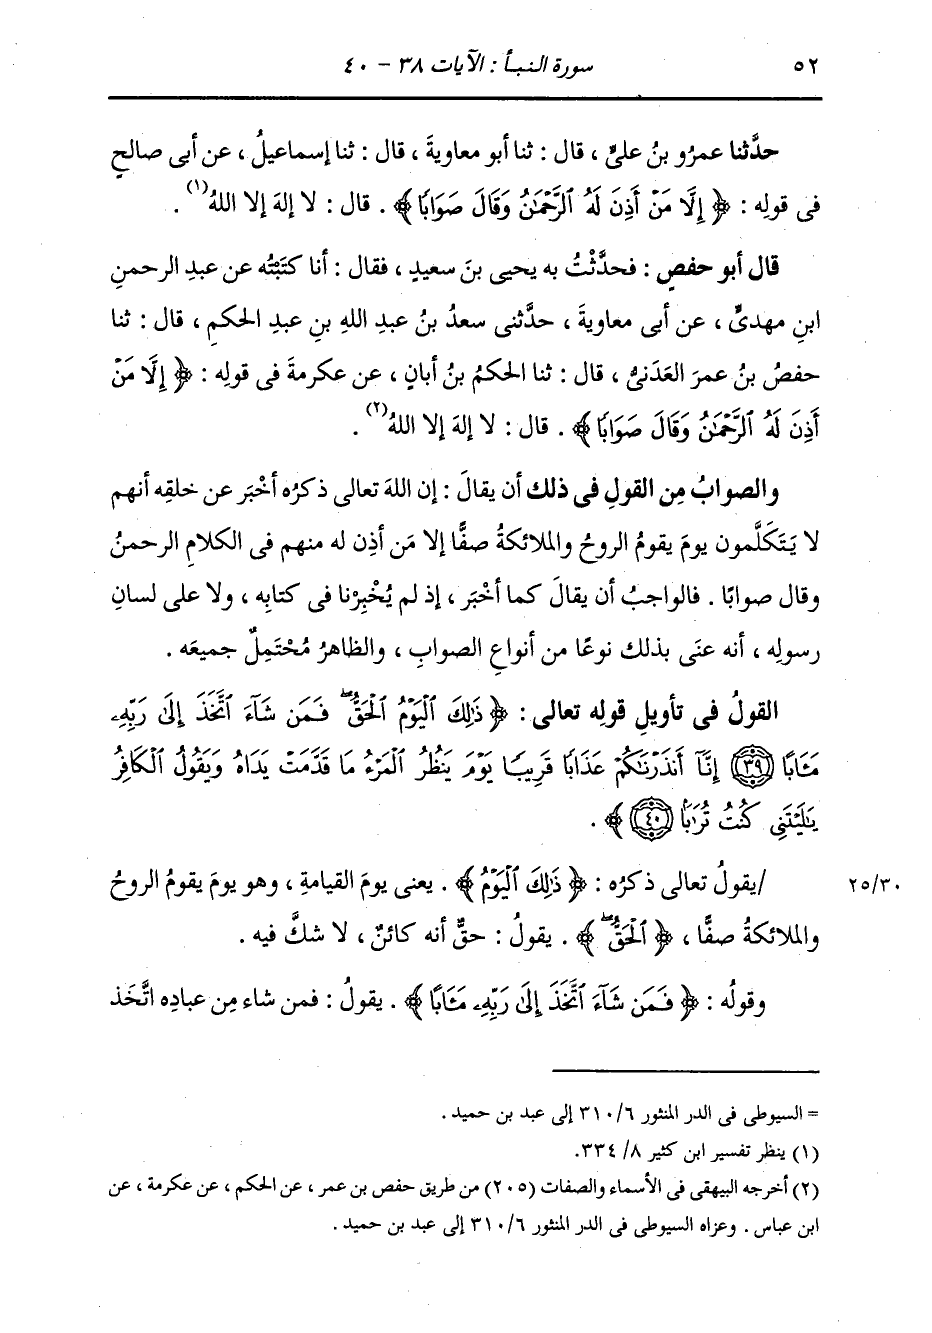 ٥٢ سورة النبأ : الآيات ٣٨ - ٤٠
حدَّثنا عمرُو بنُ علىٍّ ، قال : ثنا أبو معاويةَ ، قال : ثنا إسماعيلُ ، عن أبى صالحٍ
فى قولِه : ﴿ إِلَّا مَنْ أَذِنَ لَهُ ٱلرَّحْمَٰنُ وَقَالَ صَوَابًا ﴾ . قال : لا إلهَ إلا اللهُ(١) .
قال أبو حفصٍ : فحدَّثْتُ به يحيى بنَ سعيدٍ ، فقال : أنا كتَبْتُه عن عبدِ الرحمنِ
ابنِ مهدىٍّ ، عن أبى معاويةَ ، حدَّثنى سعدُ بنُ عبدِ اللهِ بنِ عبدِ الحكمِ ، قال : ثنا
حفصُ بنُ عمرَ العَدَنىُّ ، قال : ثنا الحكمُ بنُ أبانٍ ، عن عكرمةَ فى قولِه : ﴿ إِلَّا مَنْ
أَذِنَ لَهُ ٱلرَّحْمَٰنُ وَقَالَ صَوَابًا ﴾ . قال : لا إلهَ إلا اللهُ(٢) .
والصوابُ مِن القولِ فى ذلك أن يقالَ : إن اللهَ تعالى ذكرُه أخْبَر عن خلقِه أنهم
لا يَتَكَلَّمون يومَ يقومُ الروحُ والملائكةُ صفًّا إلا مَن أذِن له منهم فى الكلامِ الرحمنُ
وقال صوابًا . فالواجبُ أن يقالَ كما أخْبَر ، إذ لم يُخْبِرْنا فى كتابِه ، ولا على لسانِ
رسولِه ، أنه عنَى بذلك نوعًا من أنواعِ الصوابِ ، والظاهرُ مُحْتَمِلٌ جميعَه .
القولُ فى تأويلِ قولِه تعالى : ﴿ ذَٰلِكَ ٱلْيَوْمُ ٱلْحَقُّ ۖ فَمَن شَآءَ ٱتَّخَذَ إِلَىٰ رَبِّهِۦ
مَـَٔابًا ﴿٣٩﴾ إِنَّآ أَنذَرْنَٰكُمْ عَذَابًا قَرِيبًا يَوْمَ يَنظُرُ ٱلْمَرْءُ مَا قَدَّمَتْ يَدَاهُ وَيَقُولُ ٱلْكَافِرُ
يَٰلَيْتَنِى كُنتُ تُرَٰبًۢا ﴿٤٠﴾ ﴾ .
/يقولُ تعالى ذكرُه : ﴿ ذَٰلِكَ ٱلْيَوْمُ ﴾ . يعنى يومَ القيامةِ ، وهو يومَ يقومُ الروحُ ٢٥/٣٠
والملائكةُ صفًّا ، ﴿ ٱلْحَقُّ ۖ ﴾ . يقولُ : حقٌّ أنه كائنٌ ، لا شكَّ فيه .
وقولُه : ﴿ فَمَن شَآءَ ٱتَّخَذَ إِلَىٰ رَبِّهِۦ مَـَٔابًا ﴾ . يقولُ : فمن شاء مِن عبادِه اتَّخَذ
= السيوطى فى الدر المنثور ٣١٠/٦ إلى عبد بن حميد .
(١) ينظر تفسير ابن كثير ٨/ ٣٣٤.
(٢) أخرجه البيهقى فى الأسماء والصفات (٢٠٥) من طريق حفص بن عمر ، عن الحكم ، عن عكرمة ، عن
ابن عباس . وعزاه السيوطى فى الدر المنثور ٣١٠/٦ إلى عبد بن حميد .